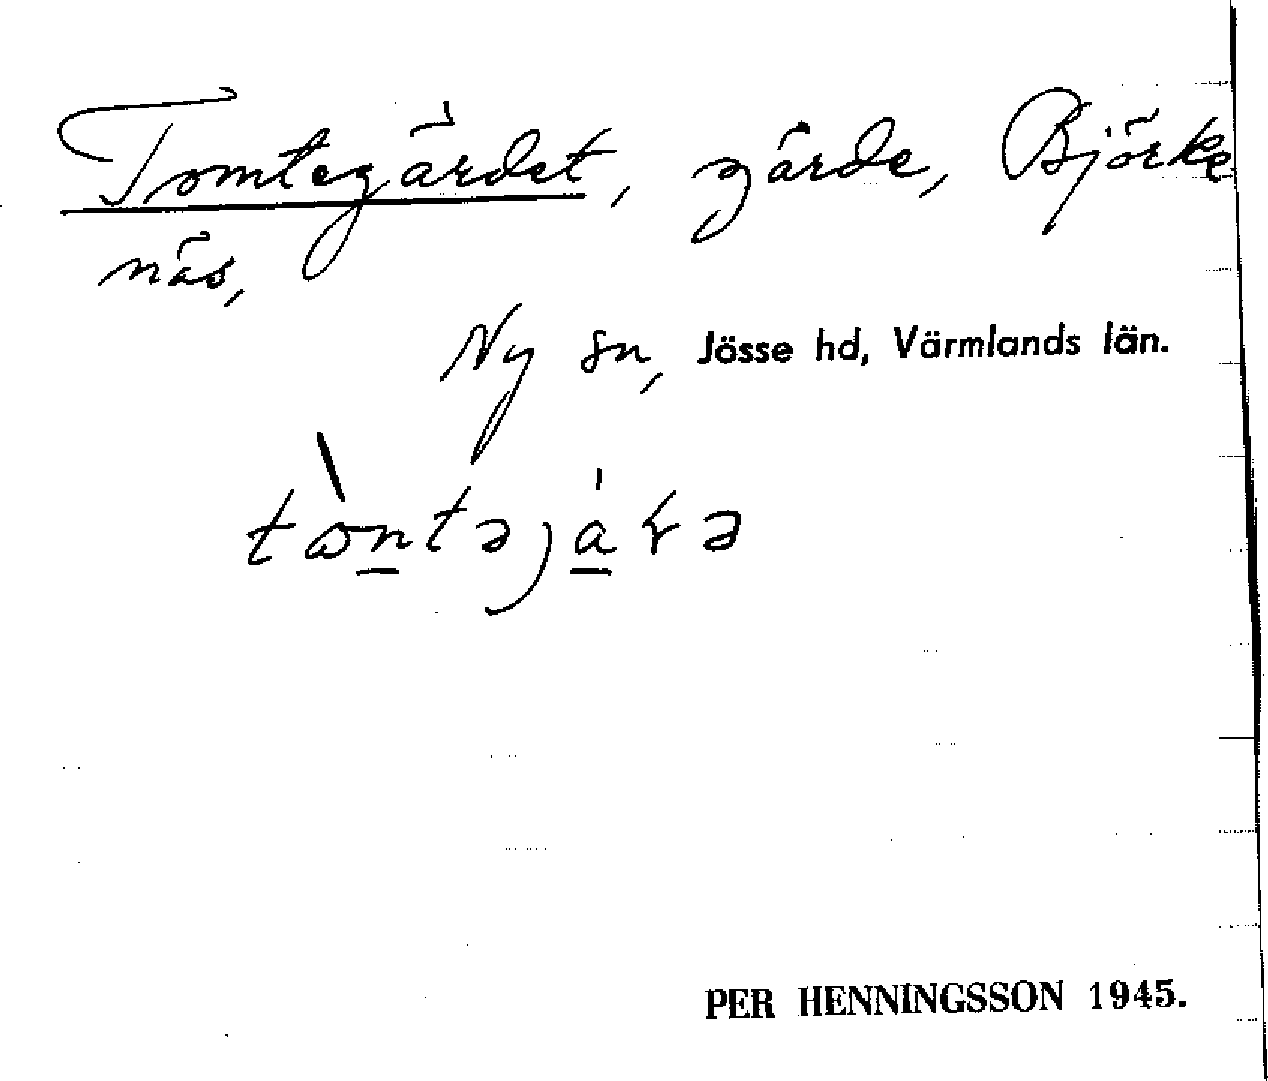 Tomtegärdet, gärde, Björke
näs,
Ny sn, Jösse hd, Värmlands län.
PER HENNINGSSON 1945.